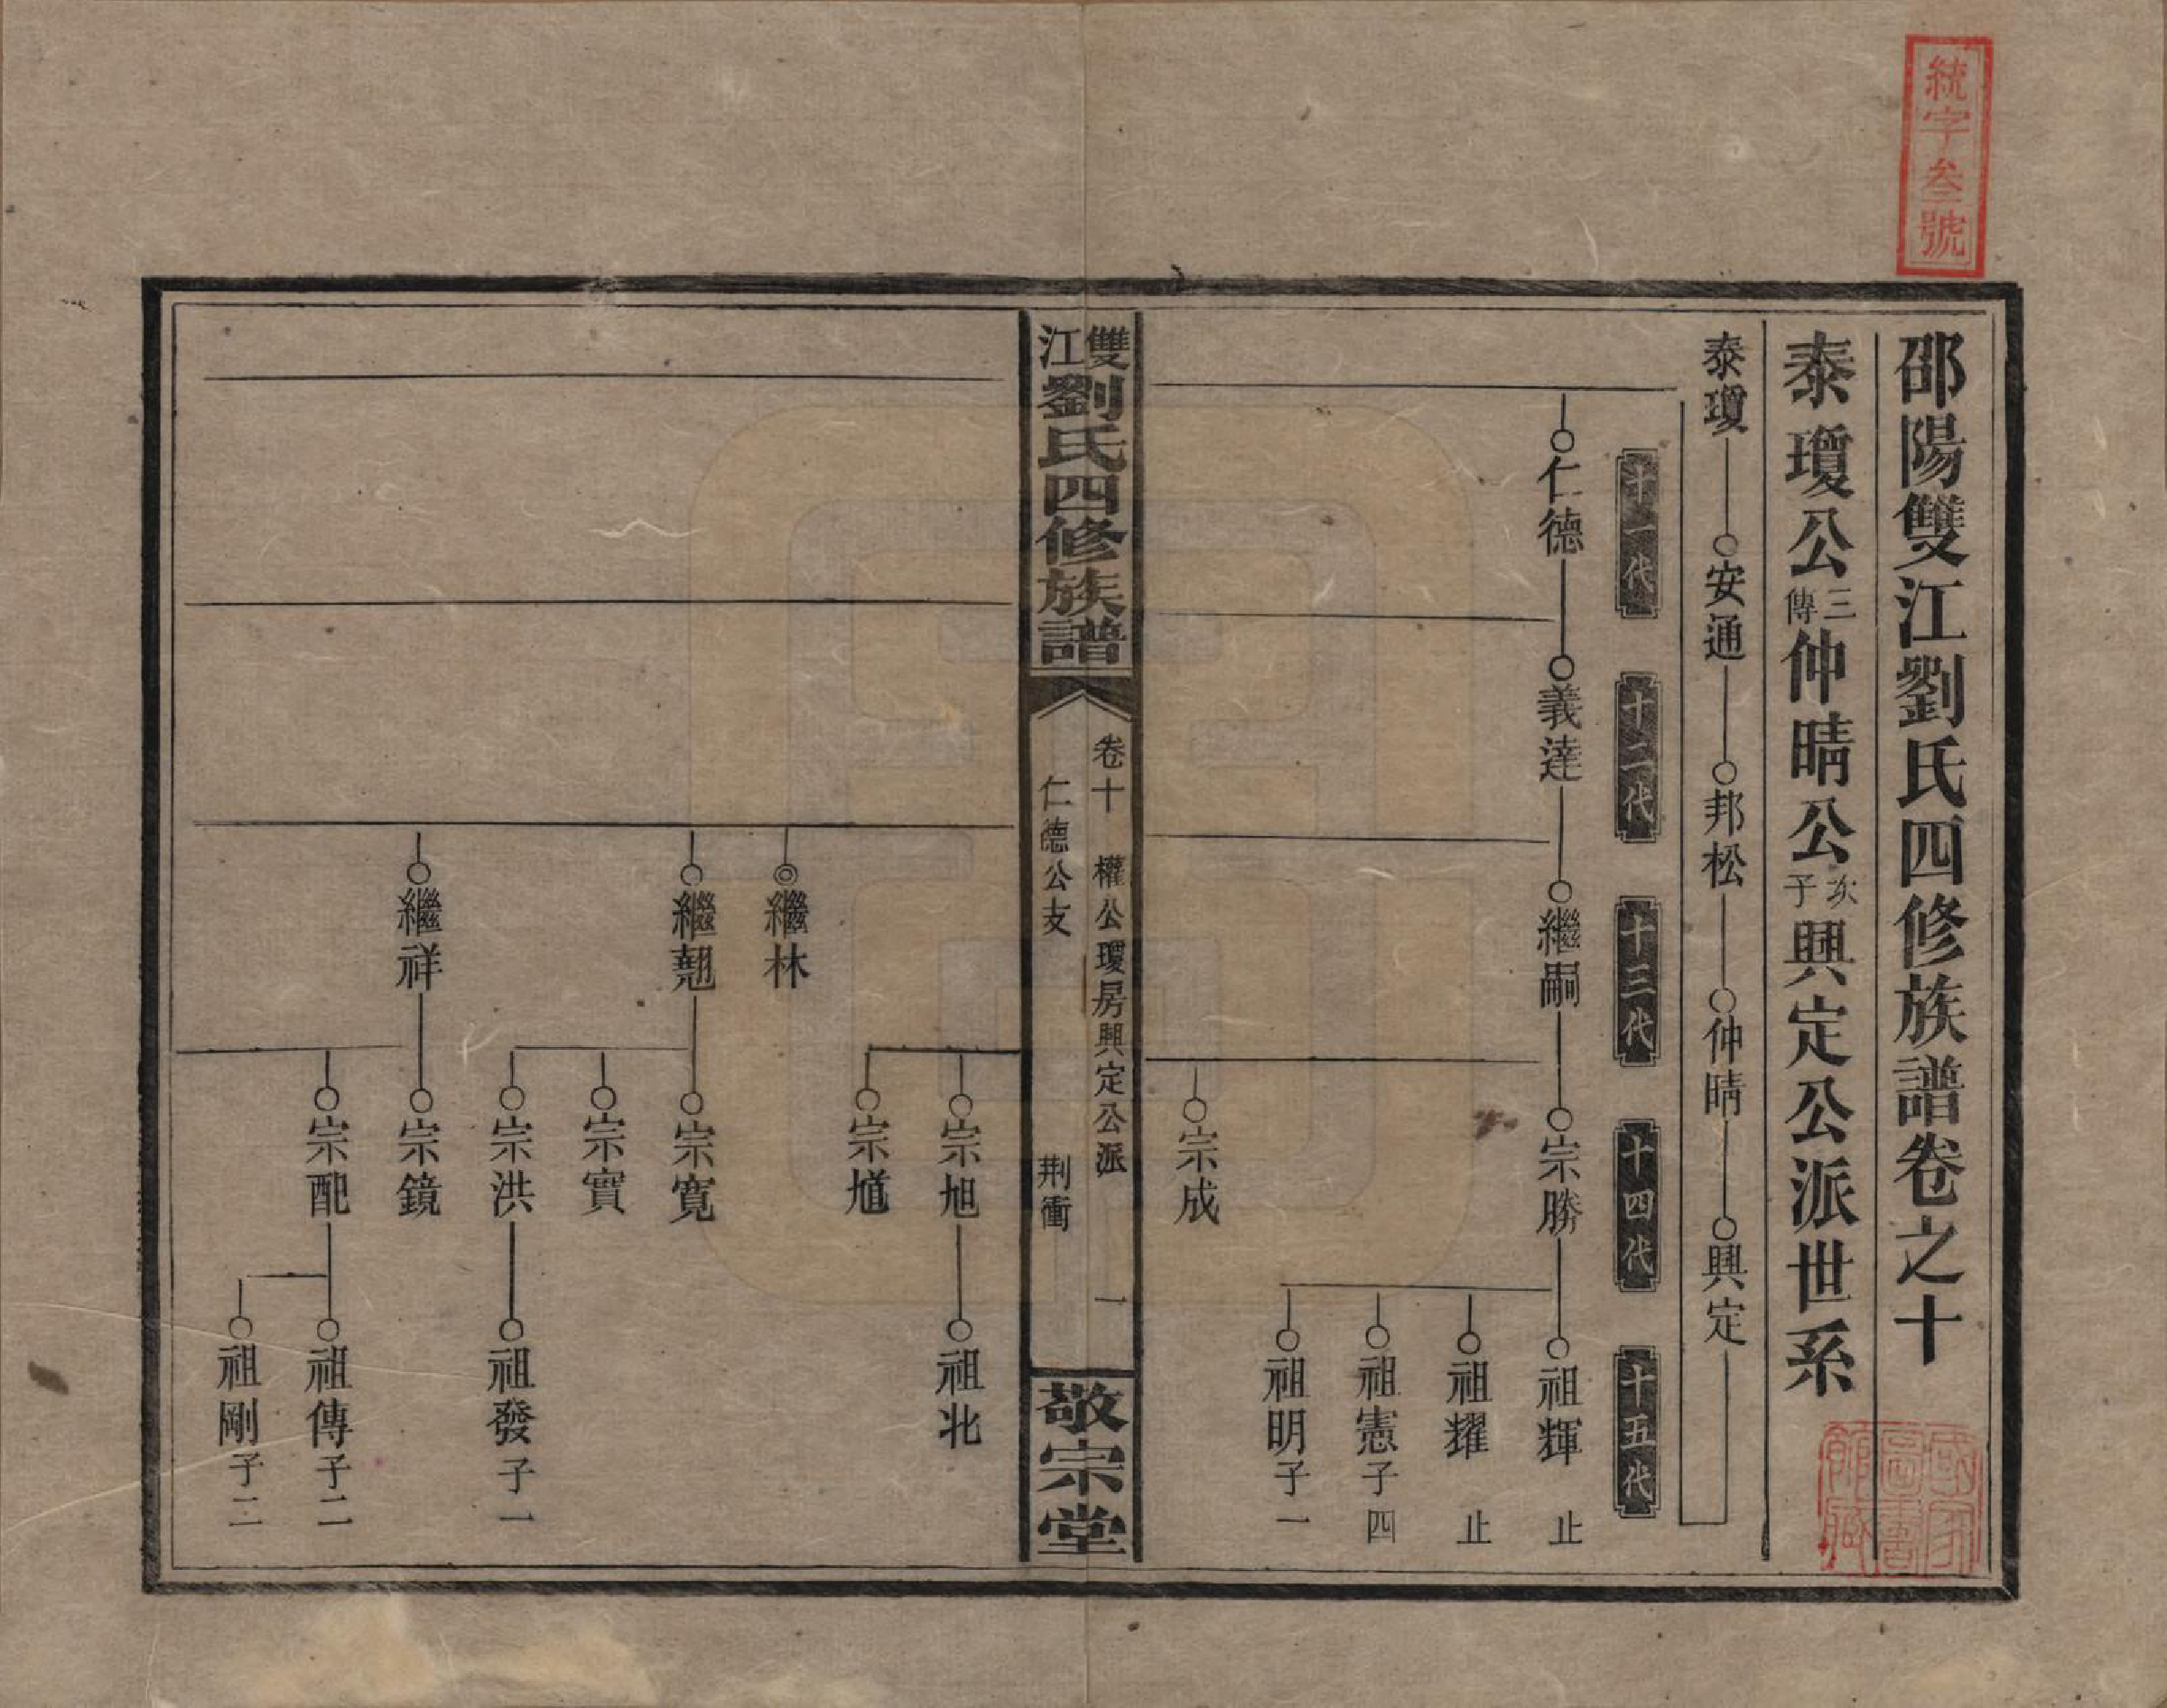 統字叁號
邵陽雙江劉氏四修族譜卷之十
泰瓊公三傳仲晴公次子興定公派世系
泰瓊 安通 邦松 仲晴 興定
十一代 十二代 十三代 十四代 十五代
仁德 義達 繼嗣 宗勝 祖輝 止
祖耀 止
祖憲 子四
祖明 子一
宗成
雙江劉氏四修族譜
卷十 權公瓊房興定公派 一
仁德公支 荆衝
敬宗堂
宗旭 祖北
宗馗
繼林
繼翹 宗寬
宗實
宗洪 祖發 子一
繼祥 宗鏡
宗配 祖傳 子二
祖剛 子二
國家圖書館藏